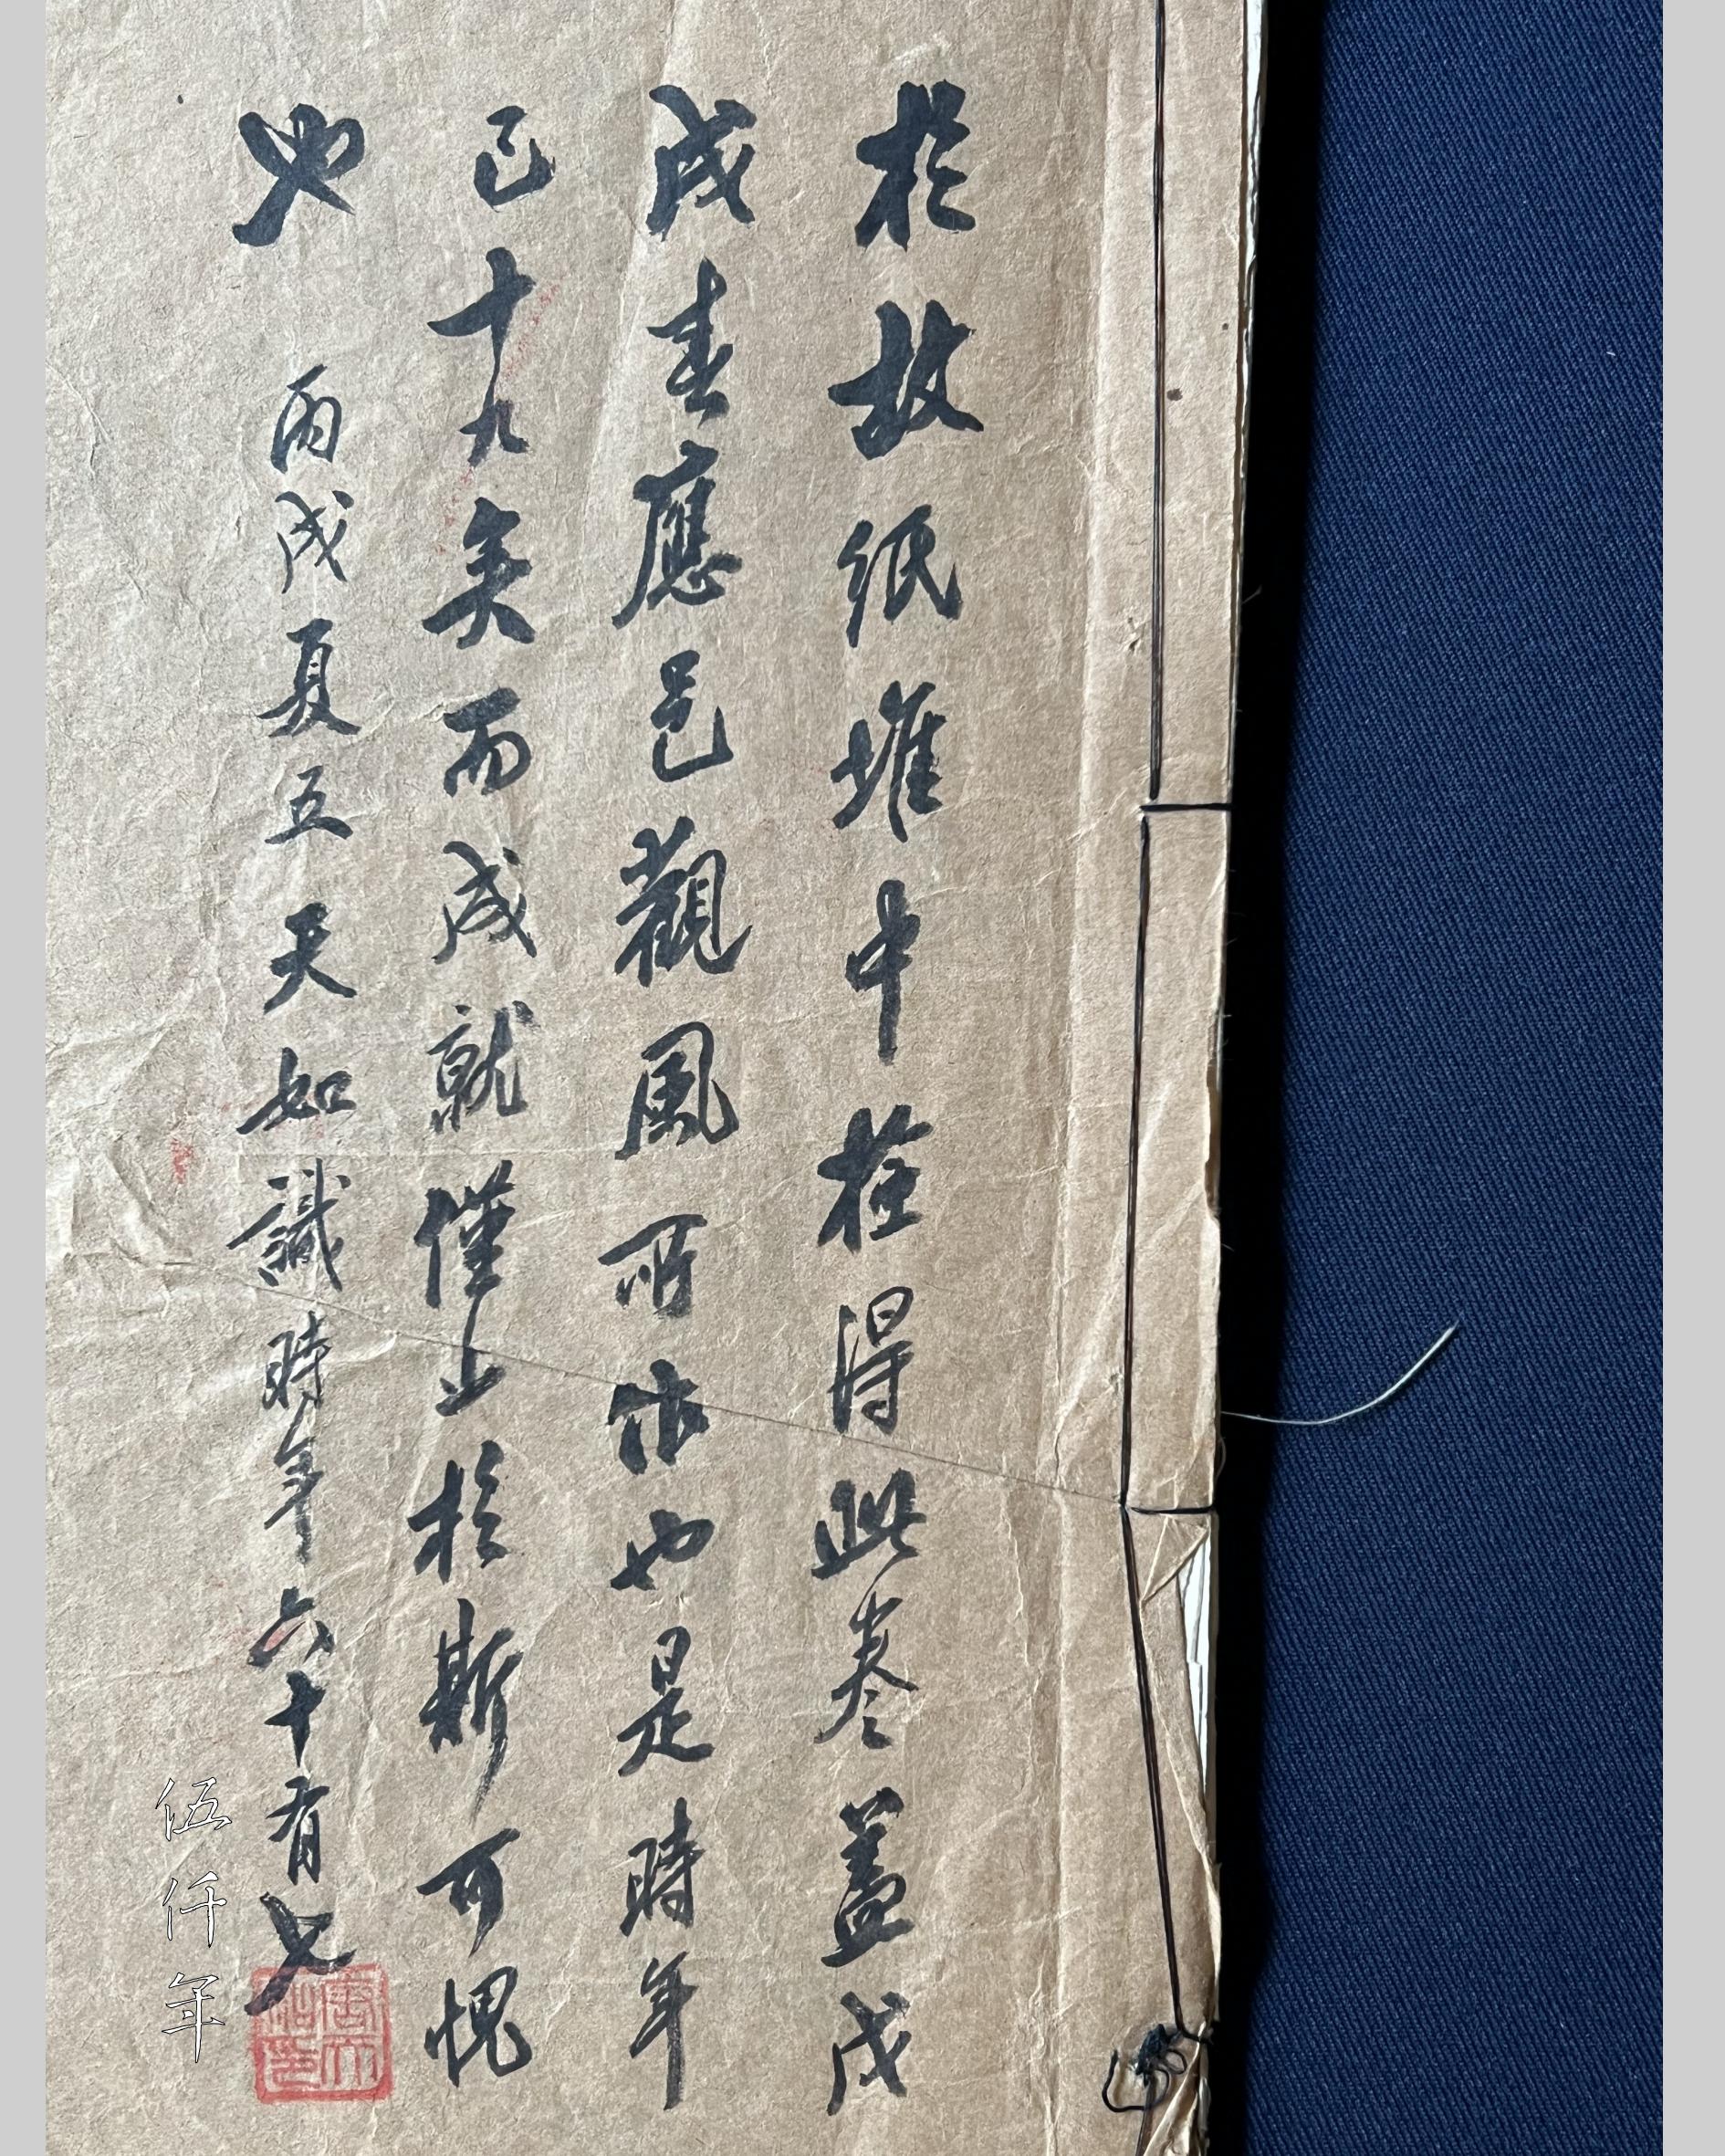 於故紙堆中檢得此卷蓋戊
戌春應邑觀風所作也是時年
已十九矣而成就僅止於斯可愧
也 丙戌夏五天如識時年六十有七
伍仟年